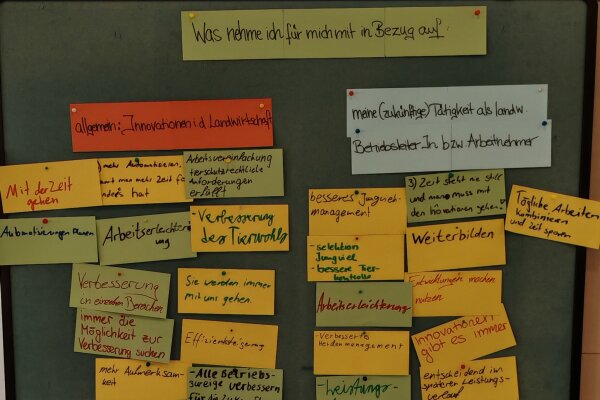 Was nehme ich für mich mit in Bezug auf.
allgemein: Innovationen i.d. Landwirtschaft
meine (zukünftige) Tätigkeit als landw.
BetriebsleiterIn bzw Arbeitnehmer
Mit der Zeit
gehen
mehr Automatisieren,
mehr Zeit für
hat
Arbeitsvereinfachung
tierschutzrechtliche
Anforderungen
erfüllt
Automatisierungen Planen
Arbeitserleichter
ung
- Verbesserung
des Tierwohls
Verbesserung
in einzelnen Bereichen
immer die
Möglichkeit zur
Verbesserung suchen
Sie werden immer
mit uns gehen.
Effizienzsteigerung
mehr Aufmerksam-
keit
- Alle Betriebs-
zweige verbessern
besseres Jungvieh-
management
- selektion
Jungviel
- bessere Tier-
kontrolle
Arbeitserleichterung
Verbessertes
Herdenmanagement
- Leistungs-
3) Zeit steht nie still
und mang muss mit
den Inovationen gehen
Weiterbilden
Entwicklungen machen
nutzen
Innovationen
gibt es immer
entscheidend im
späteren Leistungs-
verlauf
Tägliche Arbeiten
kombinieren
und zeit sparen